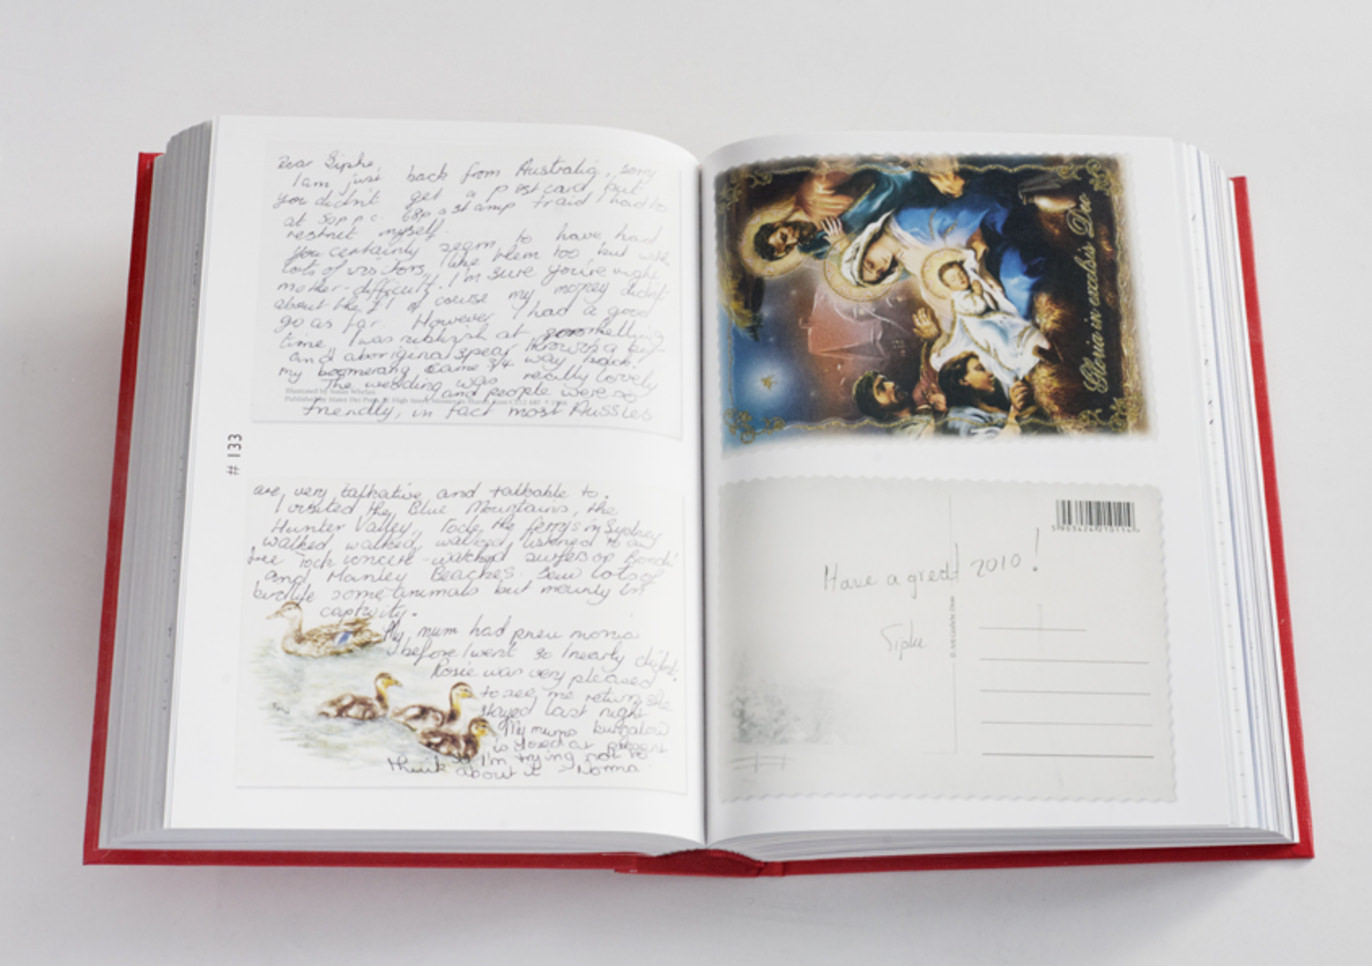 Dear Sipke,
I am just back from Australia, sorry
you didn't get a postcard but
at 50pp c. 68p a stamp I had to
myself.
You certainly seem to have had
lots of visitors, I like them too but with
mother - difficult. I'm sure you're right
about the £1 of course my money didn't
go as far. However I had a good
time, I was rubbish at
and aboriginal spear throwing but
my boomerang came 3/4 way back.
The wedding was really lovely
and people were so
friendly, in fact most Aussies
# 133
are very talkative and talkable to.
I visited the Blue Mountains, the
Hunter Valley, Took the ferrys in Sydney
walked walked, walked, listened to a
concert - watched surfers op Bondi
and Manley Beaches. Saw lots of
birdlife some animals but meunly in
captivity.
My mum had pneu monia
before I went so I nearly didn't.
Rosie was very pleased
to see me return she
stayed last night
My mums bungalow
is
think so I'm trying not to
about it Norma
Gloria in excelsis Deo
Have a great 2010!
Sipke